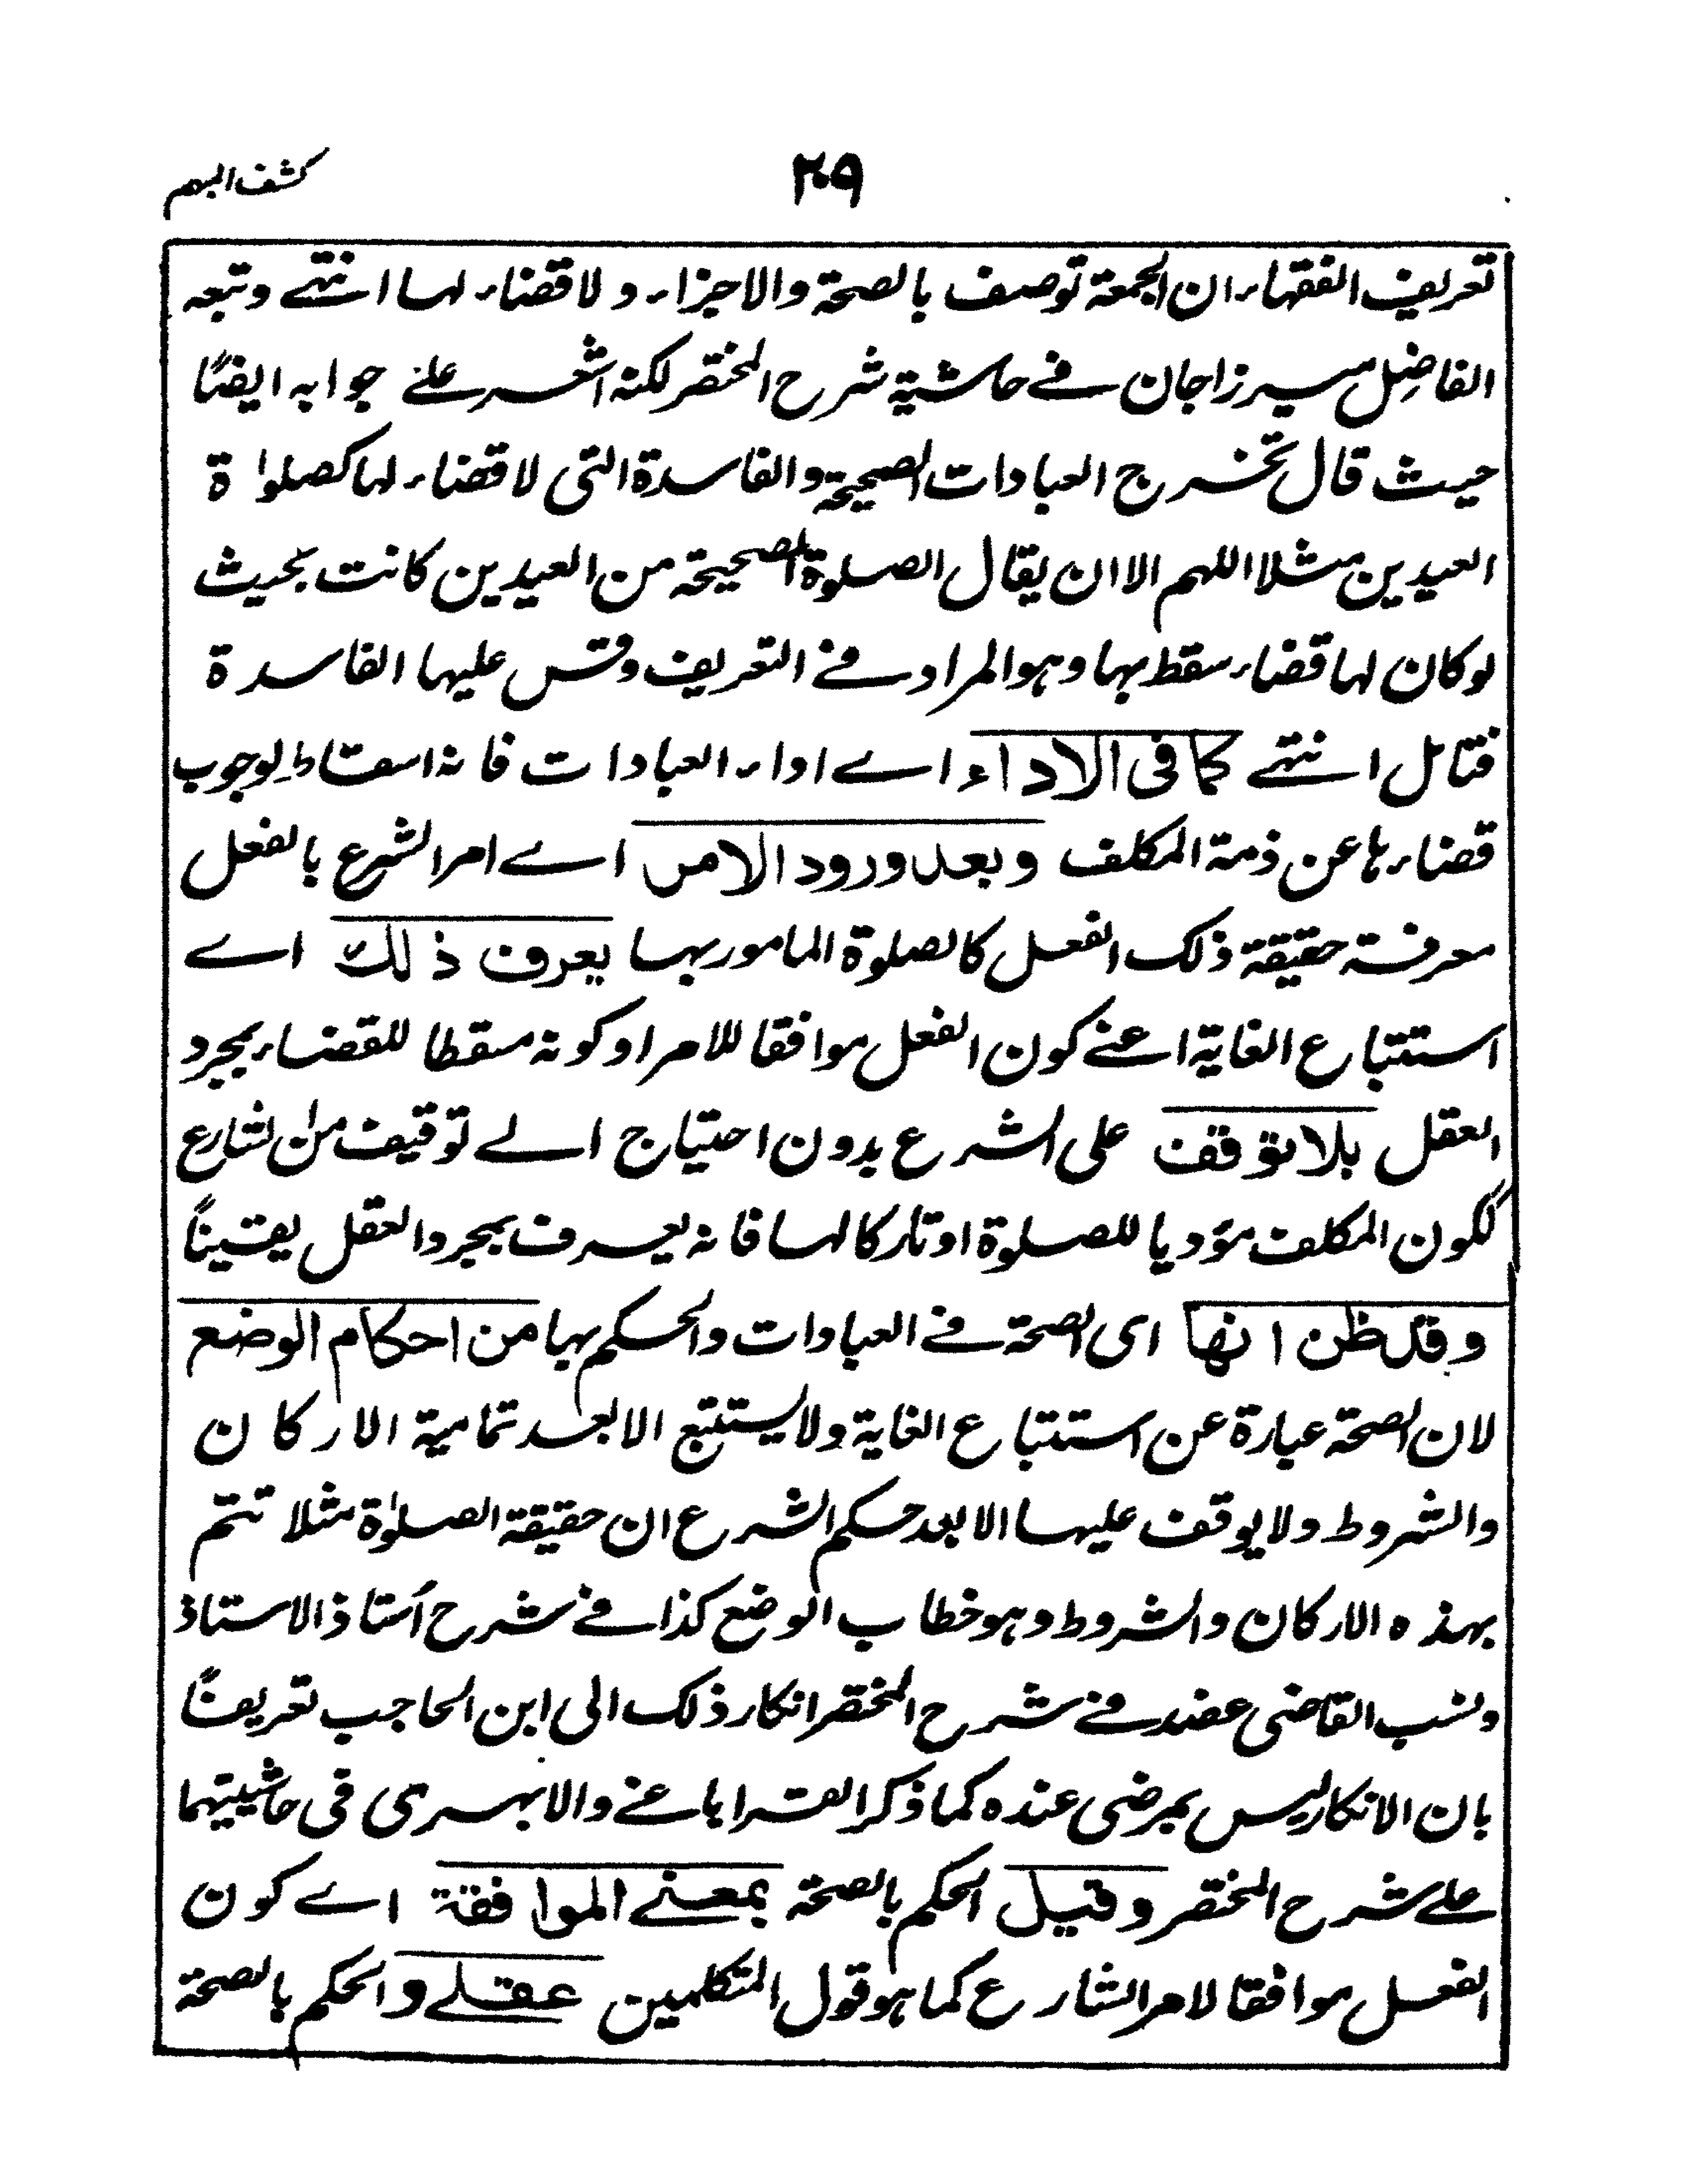 كشف المبهم
٢٠٩
تعريف الفقهاء ان الجمعة توصف بالصحة والاجزاء ولا قضاء لها انتهے وتبعه
الفاضل ميرزاجان فے حاشية شرح المختصر لكنه اشعر علے جوابه ايضًا
حيث قال تخرج العبادات الصحيحة والفاسدة التى لا قضاء لها كصلوٰة
العيدين مثلا اللهم الا ان يقال الصلوة الصحيحة من العيدين كانت بحيث
لو كان لها قضاء سقط بها وهو المراد فے التعريف وقس عليها الفاسدة
فتامل انتهے كما فى الاداء اے اداء العبادات فانه اسقاط لوجوب
قضاءها عن ذمة المكلف وبعد ورود الامر اے امر الشرع بالفعل
معرفة حقيقة ذلك الفعل كالصلوة المامور بها يعرف ذلك اے
استتباع الغاية اعنے كون الفعل موافقا للامر او كونه مسقطا للقضاء بمجرد
العقل بلا توقف على الشرع بدون احتياج الے توقيف من الشارع
ككون المكلف مؤديا للصلوة او تاركا لها فانه يعرف بمجرد العقل يقينًا
وقد ظن انها اى الصحة فے العبادات والحكم بها من احكام الوضع
لان الصحة عبارة عن استتباع الغاية ولا يستتبع الا بعد تمامية الاركان
والشروط ولا يوقف عليها الا بعد حكم الشرع ان حقيقة الصلوٰة مثلا تتم
بهذه الاركان والشروط وهو خطاب الوضع كذا فے شرح اُستاذ الاستاذ
ونسب القاضى عضد فے شرح المختصر انكار ذلك الى ابن الحاجب تعريضًا
بان الانكار ليس بمرضى عنده كما ذكر القراباغے والابهرى فى حاشيتهما
علے شرح المختصر وقيل الحكم بالصحة بمعنے الموافقة اے كون
الفعل موافقا لامر الشارع كما هو قول المتكلمين عقلے والحكم بالصحة